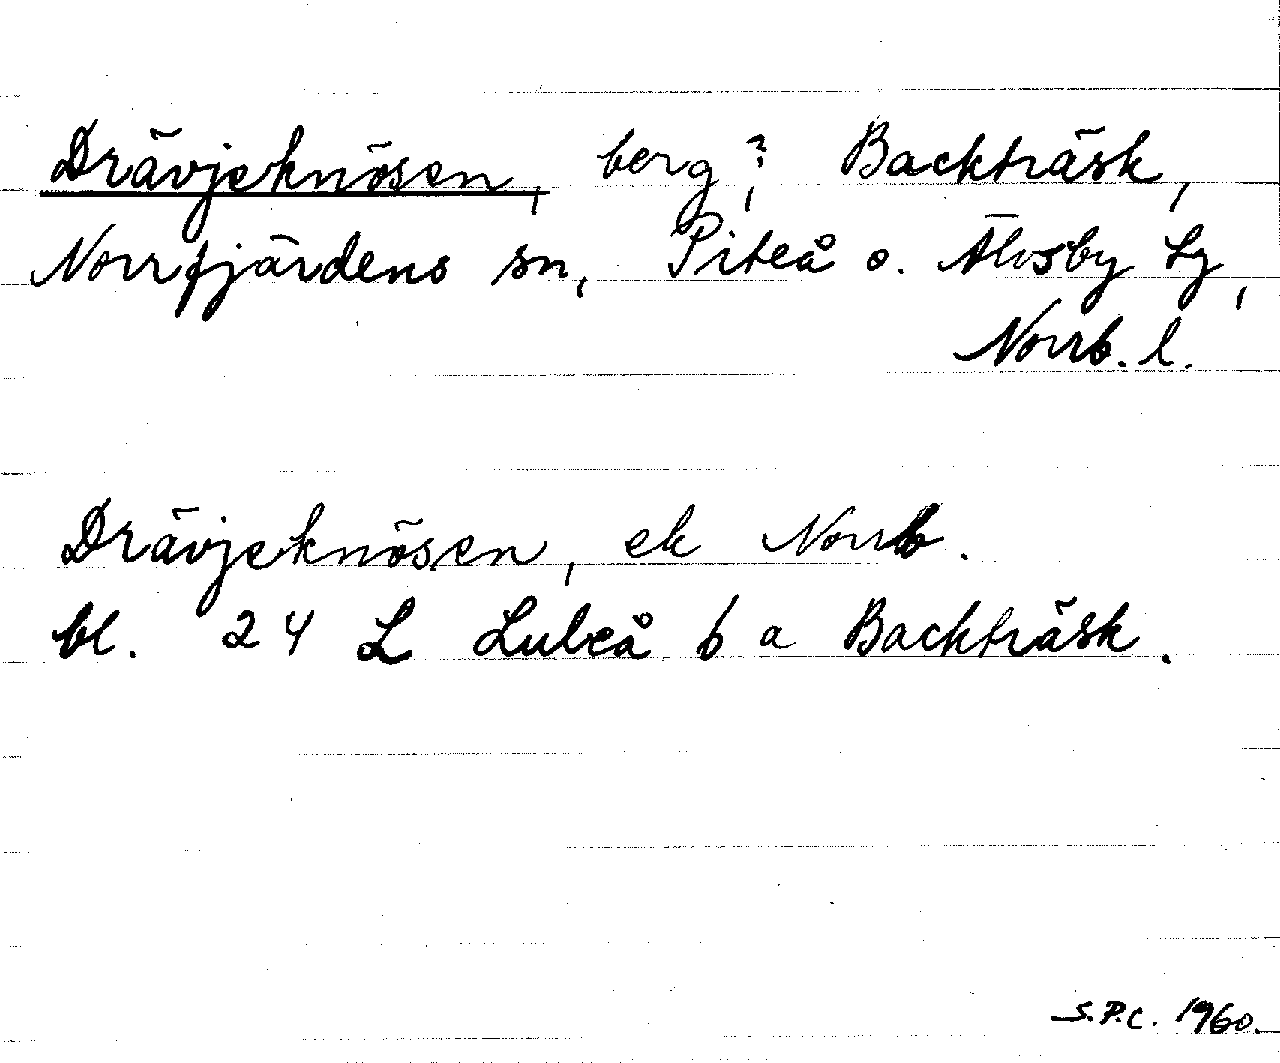 Drävjeknösen, berg?, Backträsk,
Norrfjärdens sn, Piteå o. Älvsby tg,
Norrb. l.
Drävjeknösen, ek Norrb.
bl. 24 L Luleå b a Backträsk.
S.P.C. 1960.